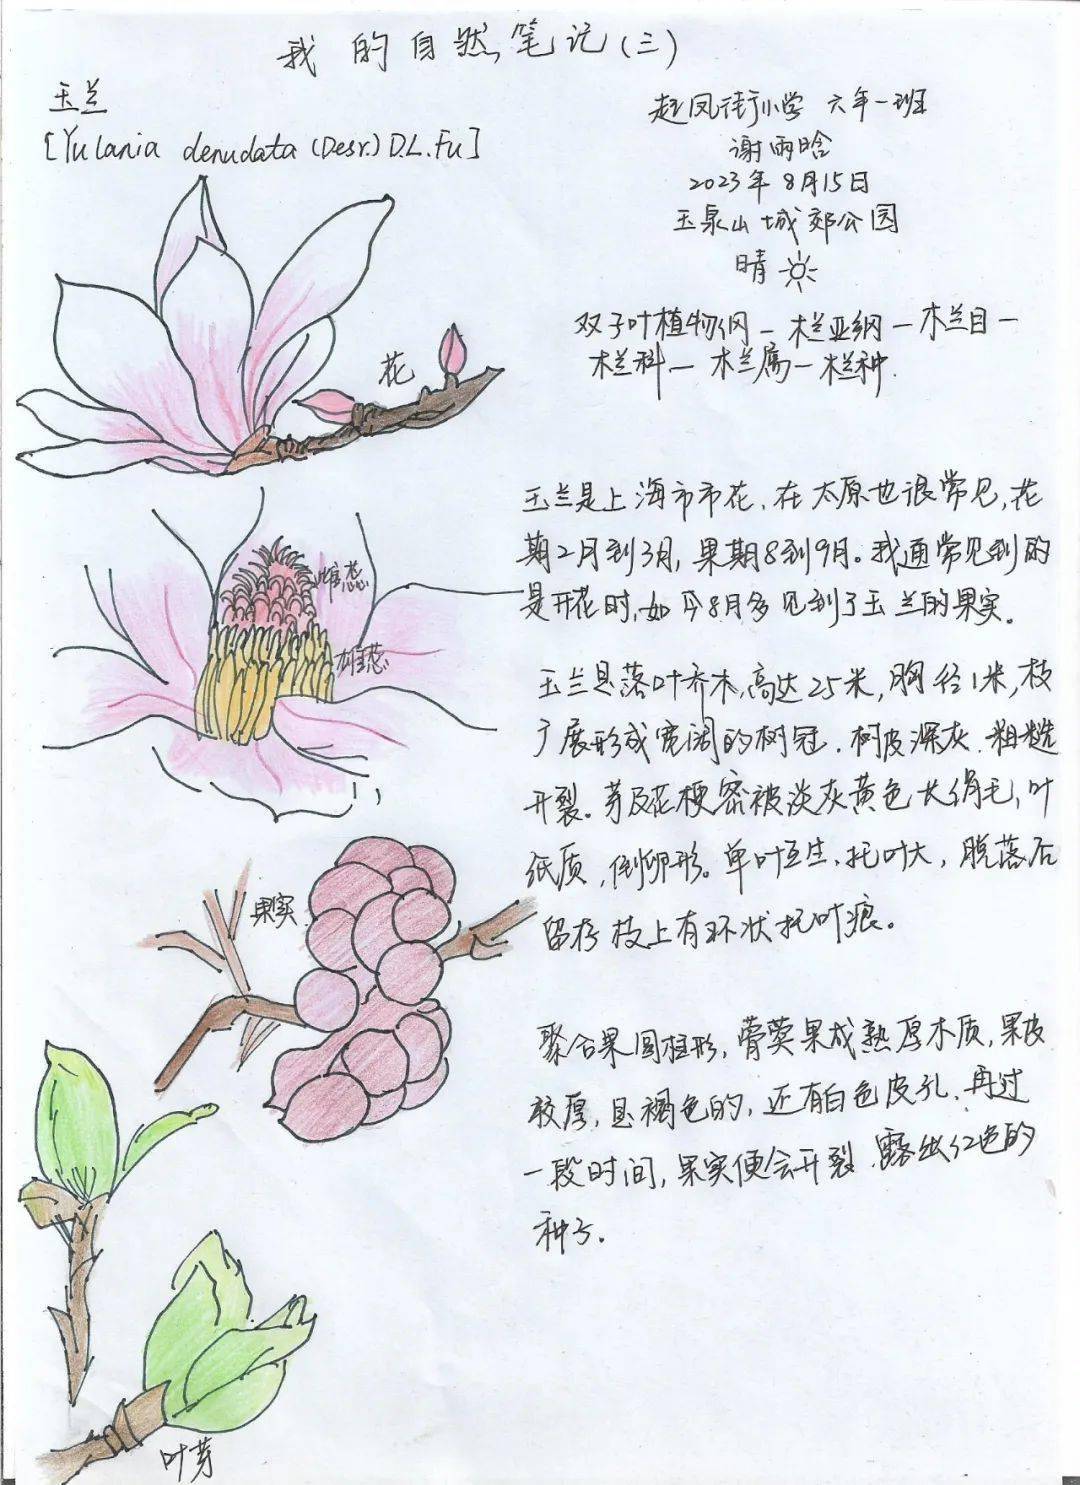 我的自然笔记(三)
玉兰
[Yulania denudata (Desr.) D.L.Fu]
起凤街小学 六年一班
谢雨晗
2023年8月15日
玉泉山城郊公园
晴
双子叶植物纲—木兰亚纲—木兰目—
木兰科—木兰属—木兰种.
花
玉兰是上海市市花,在太原也很常见,花
期2月到3月,果期8到9月。我通常见到的
是开花时,如今8月多见到了玉兰的果实。
雌蕊
雄蕊
玉兰是落叶乔木,高达25米,胸径1米,枝
广展形成宽阔的树冠.树皮深灰.粗糙
开裂。芽及花梗密被淡灰黄色长绢毛,叶
纸质,倒卵形。单叶互生,托叶大,脱落后
留存枝上有环状托叶痕。
果实
聚合果圆柱形,蓇葖果成熟厚木质,果皮
较厚,是褐色的,还有白色皮孔.再过
一段时间,果实便会开裂.露出红色的
种子.
叶芽